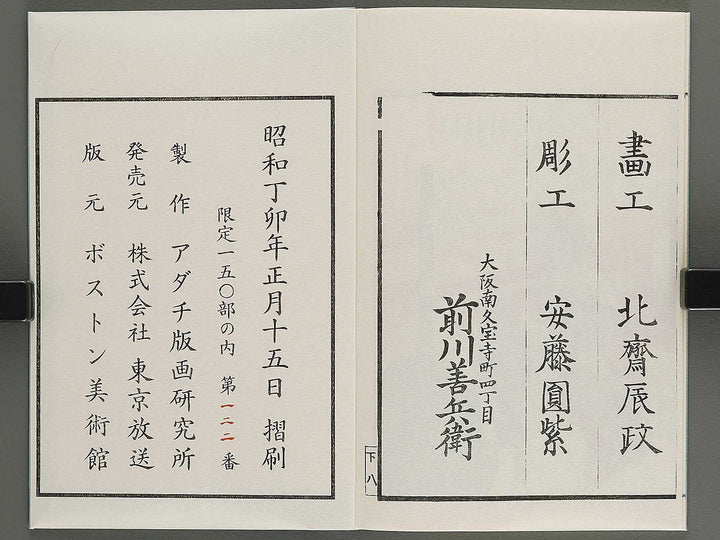 畫工 北齋辰政
彫工 安藤圓紫
大阪南久宝寺町四丁目
前川善兵衛
下 八
昭和丁卯年正月十五日 摺刷
限定一五〇部の内 第一二二番
製作 アダチ版画研究所
発売元 株式会社 東京放送
版元 ボストン美術館